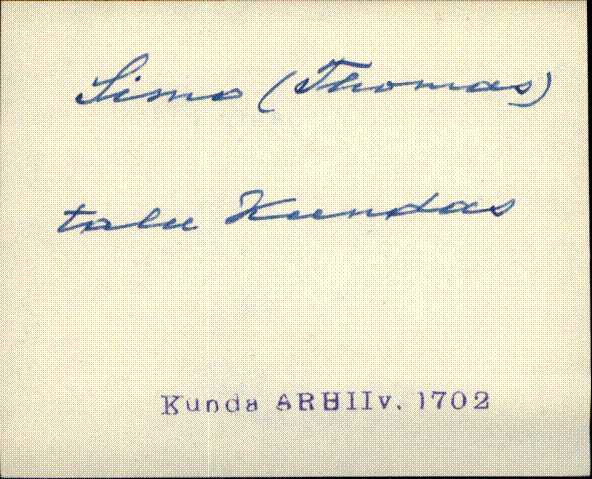 Simo (Thomas)
talu Kundas
Kunda ARHIIv. 1702